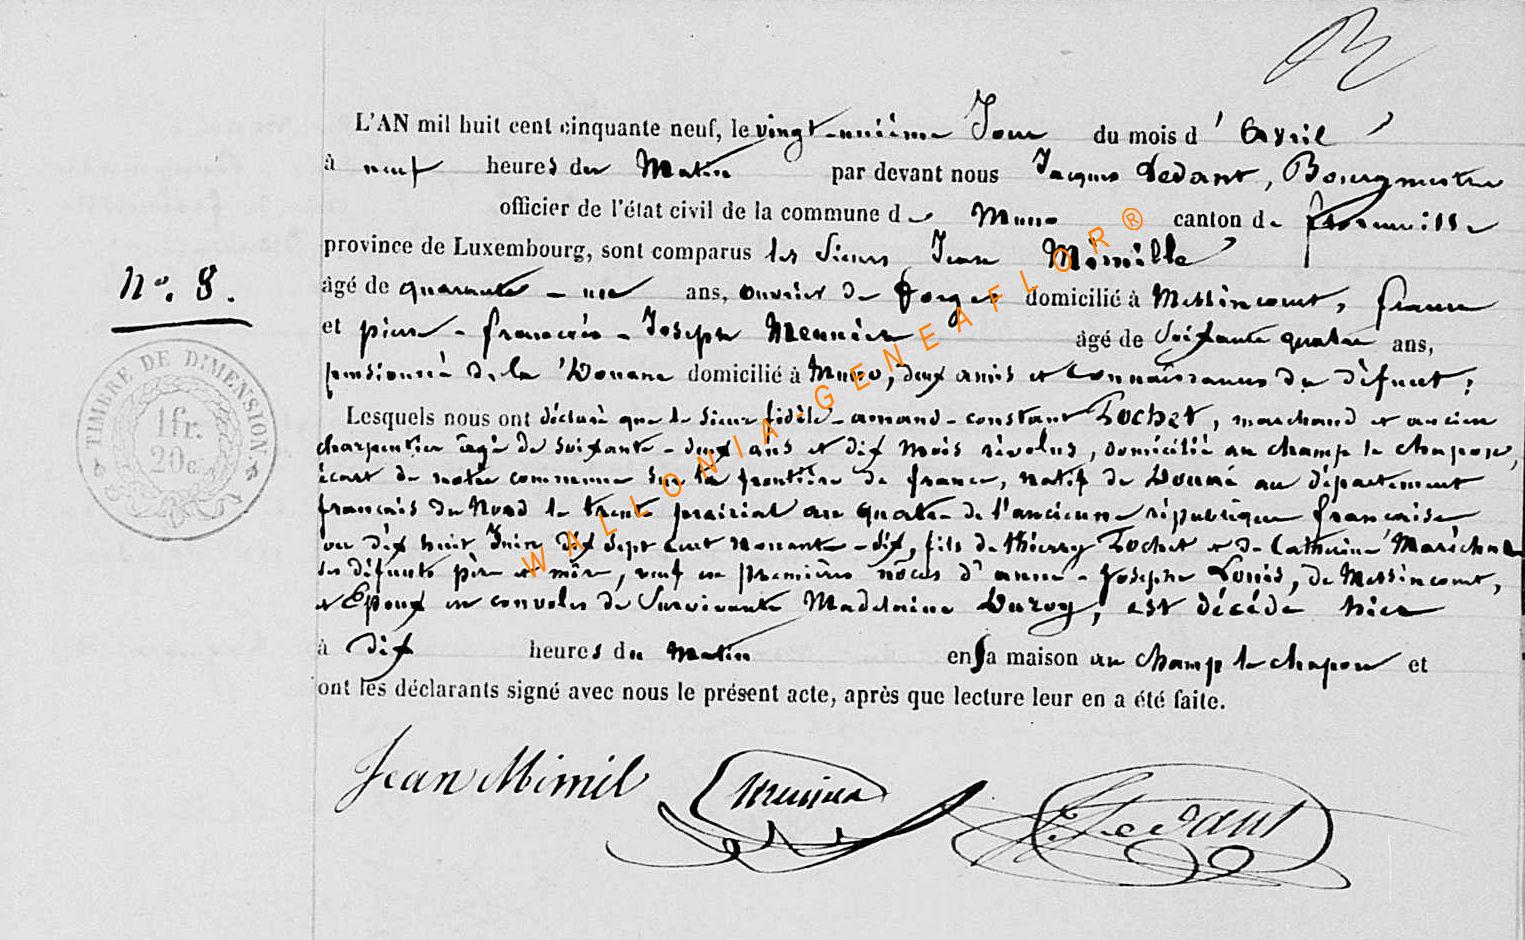 L'AN mil huit cent cinquante neuf, le vingt-unième Jour du mois d'Avril
à neuf heures du Matin par devant nous Jacques Sedant, Bourgmestre
officier de l'état civil de la commune de Muno canton de florenville
province de Luxembourg, sont comparus les Sieurs Jean Mimille
âgé de quarante-une ans, ouvrier de forges domicilié à Messincourt, france
et pierre-françois-Joseph Meunier âgé de Soixante quatre ans,
pensionné de la Douane domicilié à Muno, deux amis et connaissances du défunt;
Lesquels nous ont déclaré que le sieur fidèle-amand-constant Lochet, marchand et ancien
charpentier âgé de soixante-deux ans et dix mois révolus, domicilié au champ le chapon,
écart de notre commune sur la frontière de france, natif de au département
français du Nord le trente prairial an quatre de l'ancienne république française
ou dix huit Juin dix sept cent nonante-six, fils de thierry Lochet et de Catherine Maréchal
ses défunts père et mère, veuf en premières nôces d'anne-Josephe Louis, de Messincourt,
et Epoux en convoles de Survivante Madelaine Duroy, est décédé hier
à dix heures du matin en sa maison au champ le chapon et
ont les déclarants signé avec nous le présent acte, après que lecture leur en a été faite.
No. 8.
TIMBRE DE DIMENSION.
1fr.
20c.
Jean Mimil
Meunier
J. Sedant
WALLONIA-GENEAFLOR®